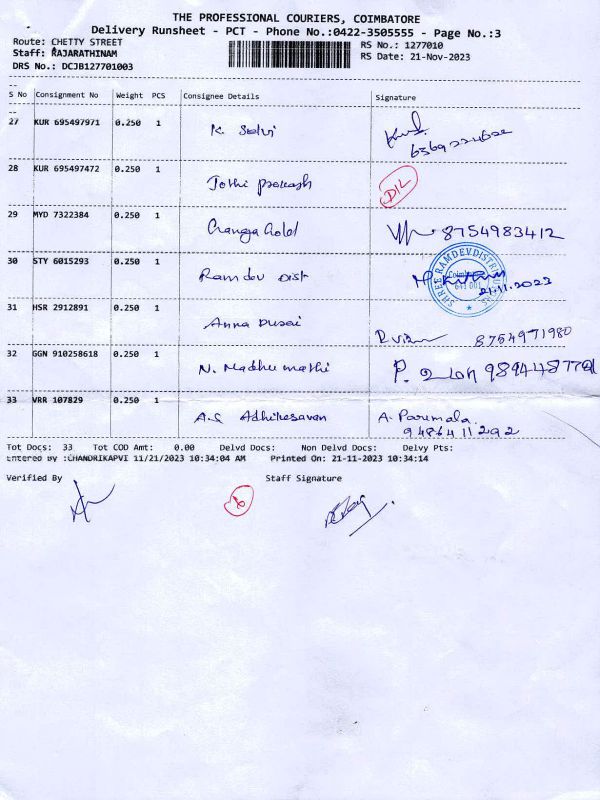 THE PROFESSIONAL COURIERS, COIMBATORE
Delivery Runsheet - PCT - Phone No.:0422-3505555 - Page No.:3
Route: CHETTY STREET RS No.: 1277010
Staff: RAJARATHINAM RS Date: 21-Nov-2023
DRS No.: DCJB127701003
S No Consignment No Weight PCS Consignee Details Signature
27 KUR 695497971 0.250 1 K. Selvi
28 KUR 695497472 0.250 1 Jothi prakash D/L
29 MYD 7322384 0.250 1 8754983412
30 STY 6015293 0.250 1 Ramdev Dist
SHREE RAMDEV DISTRIBUTORS
Coimbatore
641 001
21.11.2023
31 HSR 2912891 0.250 1 Anna Durai
8754971980
32 GGN 910258618 0.250 1 N. Madhumathi P.
33 VRR 107829 0.250 1 A.S Adhikesavan A. Parimala.
9486411292
Tot Docs: 33 Tot COD Amt: 0.00 Delvd Docs: Non Delvd Docs: Delvy Pts:
Entered By :CHANDRIKAPVI 11/21/2023 10:34:04 AM Printed On: 21-11-2023 10:34:14
Verified By Staff Signature